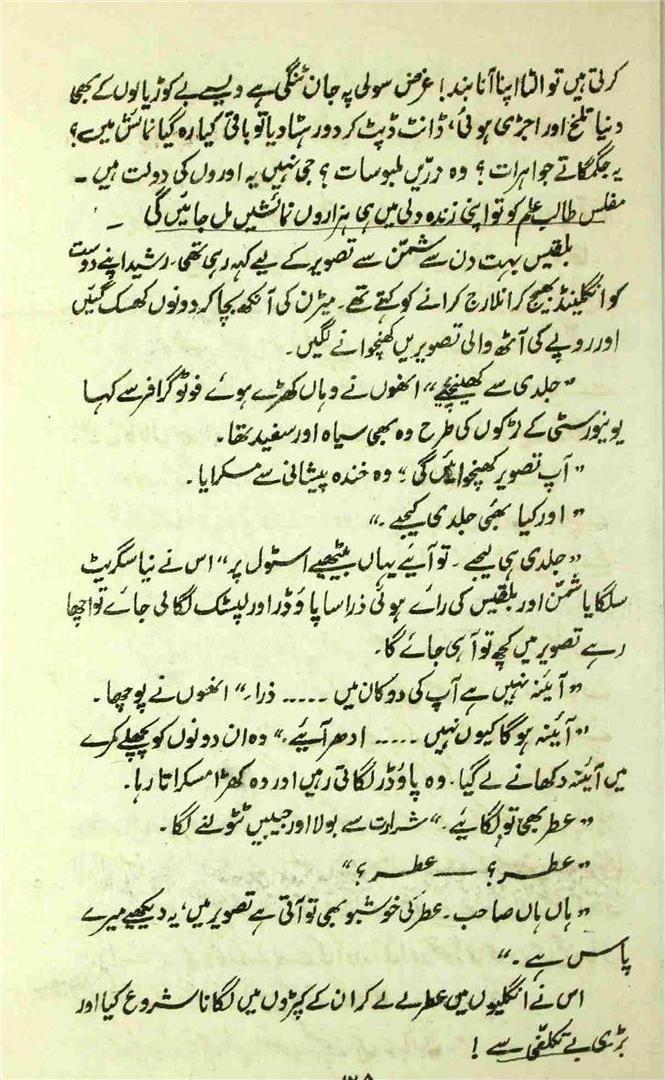 کرتی ہیں تو الٹا اپنا آنا بند! غرض سولی پہ جان ٹنگی ہے ویسے بے کوڑیالوں کے بھی
دنیا تلخ اور اجڑی ہوئی، ڈانٹ ڈپٹ کر دور ہٹا دیا تو باقی کیا رہ گیا نمائش میں؟
یہ جگمگاتے جواہرات؟ وہ زرّیں ملبوسات؟ جی نہیں یہ اوروں کی دولت ہیں۔
مفلس طالب علم کو تو اپنی زندہ دلی میں ہی ہزاروں نمائشیں مل جائیں گی۔
بلقیس بہت دن سے شمّن سے تصویر کے لیے کہہ رہی تھی۔ رشید اپنے دوست
کو انگلینڈ بھیج کر انلارج کرانے کو کہتے تھے۔ میٹرن کی آنکھ بچا کر دونوں کھسک گئیں
اور روپے کی آٹھ والی تصویریں کھنچوانے لگیں۔
"جلدی سے کھینچیے" انھوں نے وہاں کھڑے ہوئے فوٹو گرافر سے کہا
یونیورسٹی کے لڑکوں کی طرح وہ بھی سیاہ اور سفید تھا۔
"آپ تصویر کھنچوائیں گی؟" وہ خندہ پیشانی سے مسکرایا۔
"اور کیا بھئی جلدی کیجیے۔"
"جلدی ہی لیجیے۔ تو آیئے یہاں بیٹھیے اسٹول پر" اس نے نیا سگریٹ
سلگایا شمّن اور بلقیس کی رائے ہوئی ذرا سا پاؤڈر اور لپسٹک لگا لی جائے تو اچھا
رہے تصویر میں کچھ تو آ ہی جائے گا۔
"آئینہ نہیں ہے آپ کی دوکان میں ..... ذرا۔" انھوں نے پوچھا۔
"آئینہ ہو گا کیوں نہیں ..... ادھر آیئے۔" وہ ان دونوں کو پچھلے کمرے
میں آئینہ دکھانے لے گیا۔ وہ پاؤڈر لگاتی رہیں اور وہ کھڑا مسکراتا رہا۔
"عطر بھی تو لگایئے۔" شرارت سے بولا اور جیبیں ٹٹولنے لگا۔
"عطر؟ — عطر؟"
"ہاں ہاں صاحب۔ عطر کی خوشبو بھی تو آتی ہے تصویر میں، یہ دیکھیے میرے
پاس ہے۔"
اس نے انگلیوں میں عطر لے لے کر ان کے کپڑوں میں لگانا شروع کیا اور
بڑی بے تکلفی سے!